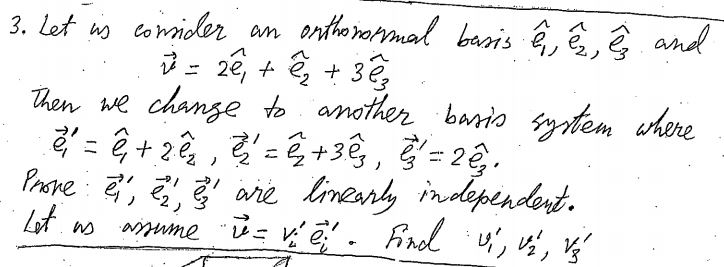 3. Let us consider an orthonormal basis ê₁, ê₂, ê₃ and
v⃗ = 2ê₁ + ê₂ + 3ê₃
Then we change to another basis system where
e⃗₁' = ê₁ + 2ê₂, e⃗₂' = ê₂ + 3ê₃, e⃗₃' = 2ê₃.
Prove: e⃗₁', e⃗₂', e⃗₃' are linearly independent.
Let us assume v⃗ = vᵢ' e⃗ᵢ'. Find v₁', v₂', v₃'